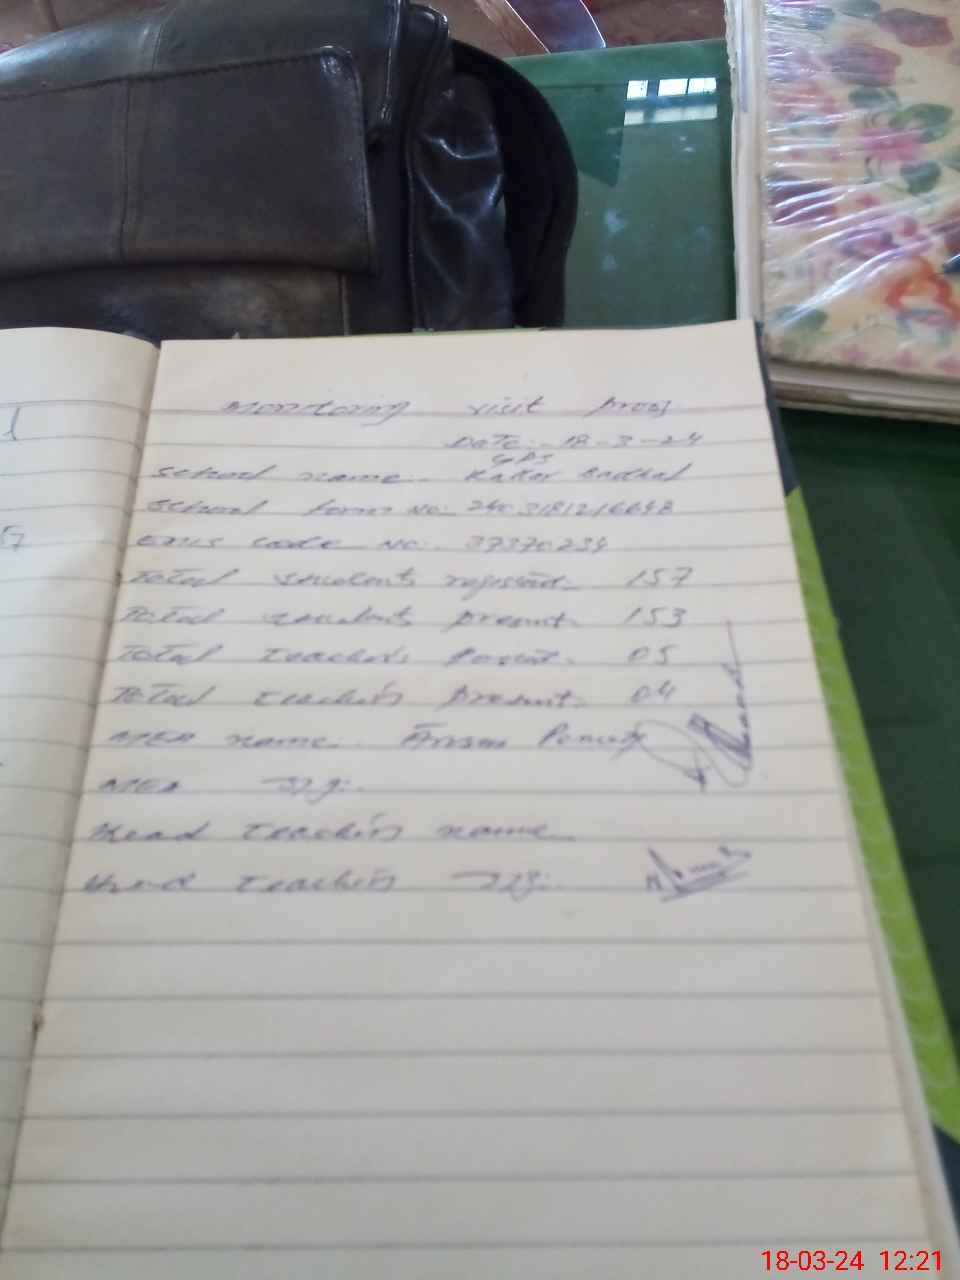 Monitoring visit proof
Date:- 18-3-24
GPS
School name:- Kakar Badhal
School form No:
EMIS code No:. 37370234
Total students registed- 157
Total students present- 153
Total teachers Posted- 05
Total teachers present- 04
MEA name:.
MEA Sig:.
Head teachers name
Head teachers Sig:.
1
57
18-03-24 12:21